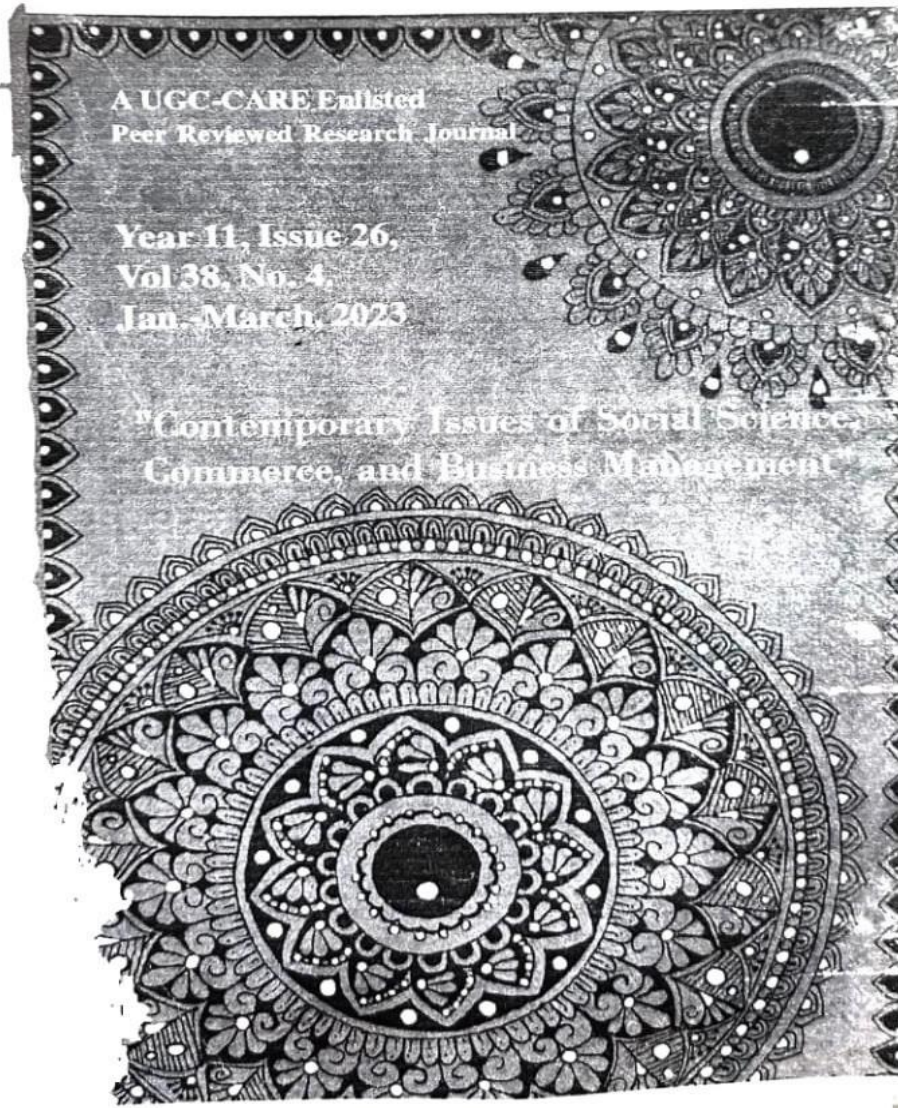 A UGC-CARE Enlisted
Peer Reviewed Research Journal
Year 11, Issue 26,
Vol 38, No. 4,
Jan.-March, 2023
"Contemporary Issues of Social Science,
Commerce, and Business Management"